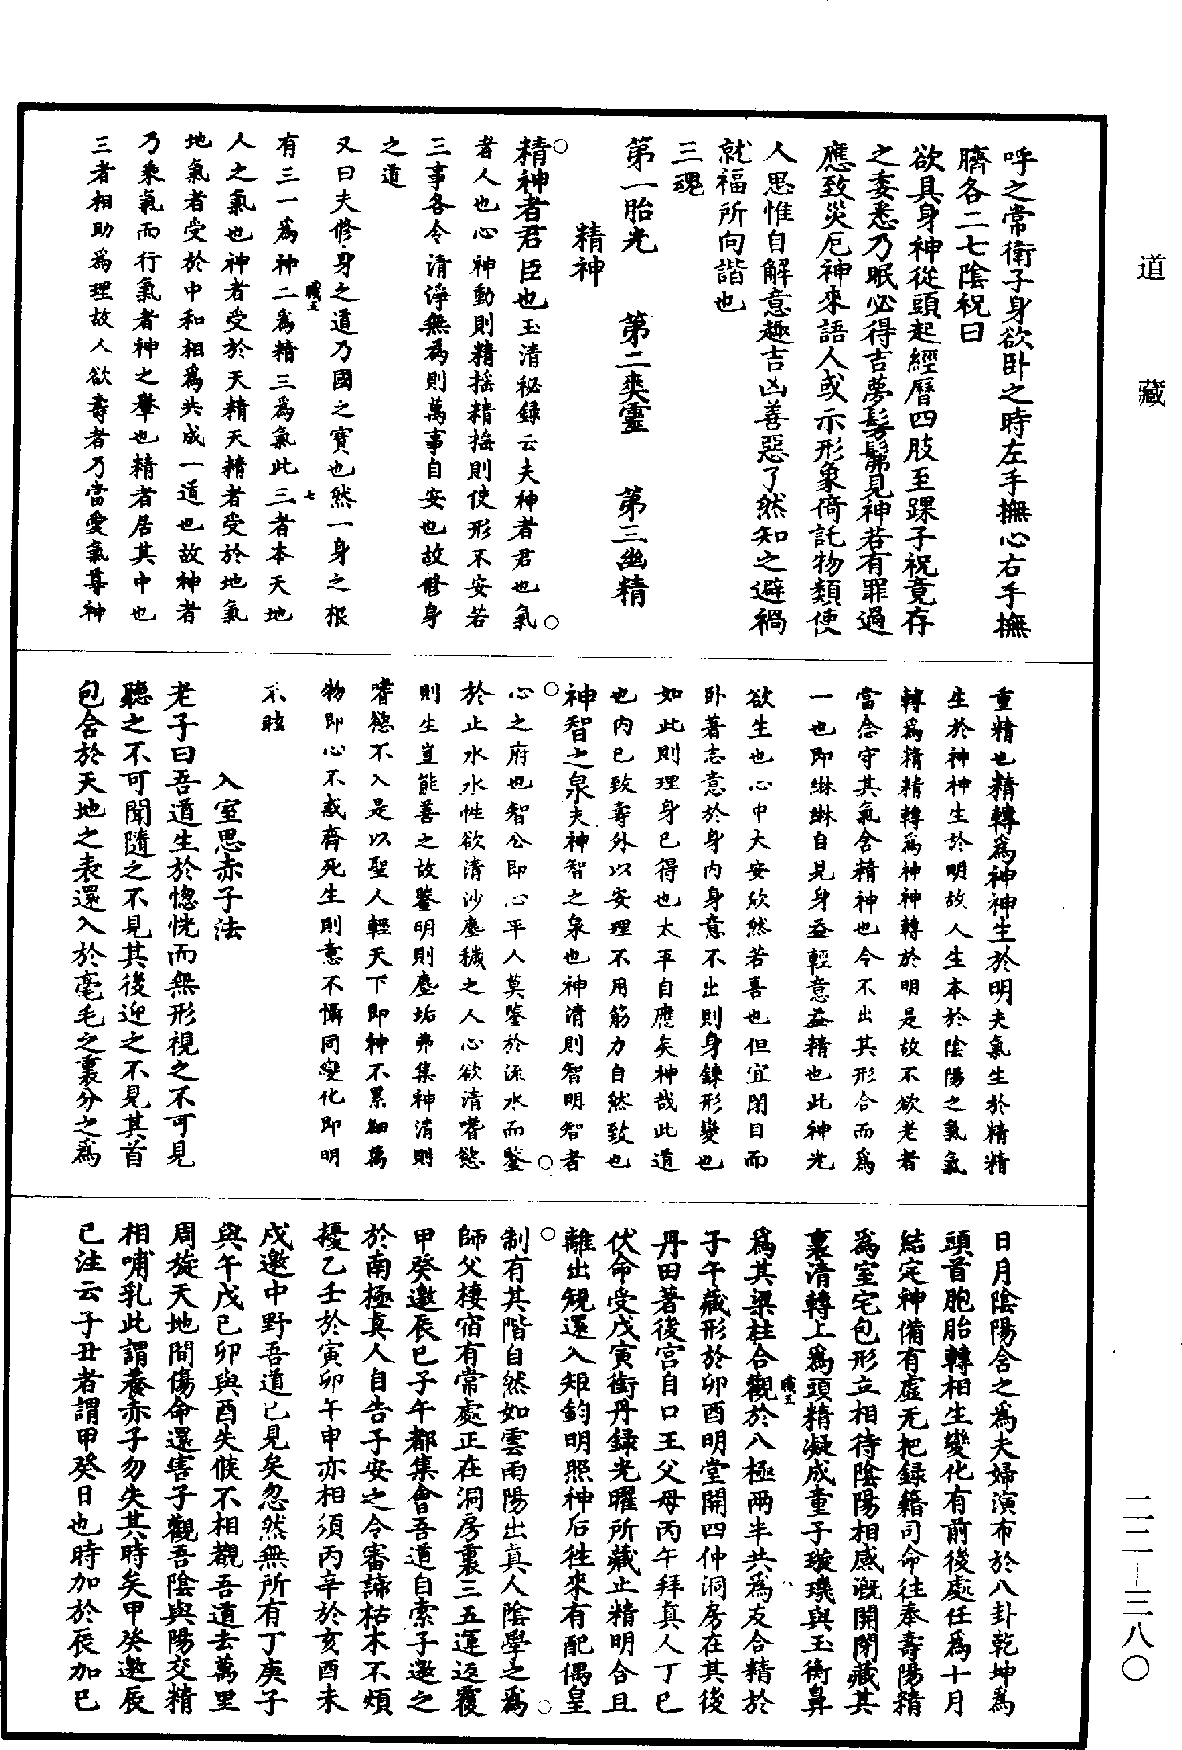 道藏
二二—三八〇
呼之常衛子身欲卧之時左手撫心右手撫
臍各二七陰祝曰
欲具身神從頭起經曆四肢至踝子祝竟存
之委悉乃眠必得吉夢髣髴見神若有罪過
應致災厄神來語人或示形象倚託物類使
人思惟自解意趣吉凶善惡了然知之避禍
就福所向諧也
三魂
第一胎光 第二爽靈 第三幽精
精神
精神者君臣也玉清秘録云夫神者君也氣
者人也心神動則精摇精摇則使形不安若
三事各令清淨無為則萬事自安也故修身
之道
又曰夫修身之道乃國之寶也然一身之根
職五 七
有三一為神二為精三為氣此三者本天地
人之氣也神者受於天精天精者受於地氣
地氣者受於中和相為共成一道也故神者
乃乘氣而行氣者神之轝也精者居其中也
三者相助為理故人欲壽者乃當愛氣尊神
重精也精轉為神神生於明夫氣生於精精
生於神神生於明故人生本於陰陽之氣氣
轉為精精轉為神神轉於明是故不欲老者
當念守其氣含精神也令不出其形合而為
一也即綝綝自見身益輕意益精也此神光
欲生也心中大安欣然若喜也但宜閉目而
卧著志意於身内身意不出則身鍊形變也
如此則理身已得也太平自應矣神哉此道
也内已致壽外以安理不用筋力自然致也
神智之泉夫神智之泉也神清則智明智者
心之府也智公即心平人莫鑒於流水而鑒
於止水水性欲清沙塵穢之人心欲清嗜慾
則生豈能善之故鑒明則塵垢弗集神清則
嗜慾不入是以聖人輕天下即神不累細萬
物即心不惑齊死生則意不懾同變化即明
不眩
入室思赤子法
老子曰吾道生於惚恍而無形視之不可見
聽之不可聞隨之不見其後迎之不見其首
包含於天地之表還入於毫毛之裏分之為
日月陰陽含之為夫婦演布於八卦乾坤為
頭首胞胎轉相生變化有前後處任為十月
結定神備有虛无把録籍司命往奉壽陽精
為室宅包形立相待陰陽相感溉開閉藏其
裏清轉上為頭精凝成童子璇璣與玉衡鼻
職五
為其梁柱合觀於八極兩半共為友合精於
子午藏形於卯酉明堂開四仲洞房在其後
丹田著後宫自口王父母丙午拜真人丁巳
伏命受戊寅銜丹録光曜所藏止精明合且
離出規還入矩鈞明照神后往來有配偶皇
制有其階自然如雲雨陽出真人陰學之為
師父棲宿有常處正在洞房裏三五運返覆
甲癸邀辰巳子午都集會吾道自索子邀之
於南極真人自告子安之令審諦枯木不煩
擾乙壬於寅卯午申亦相須丙辛於亥酉未
戍邀中野吾道已見矣忽然無所有丁庚子
與午戊己卯與酉失候不相覩吾道去萬里
周旋天地間傷命還害子觀吾陰與陽交精
相哺乳此謂養赤子勿失其時矣甲癸邀辰
已注云子丑者謂甲癸日也時加於辰加巳